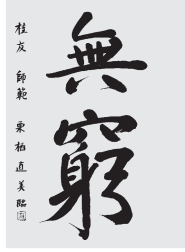 無窮
桂友 師範 栗柏直美臨